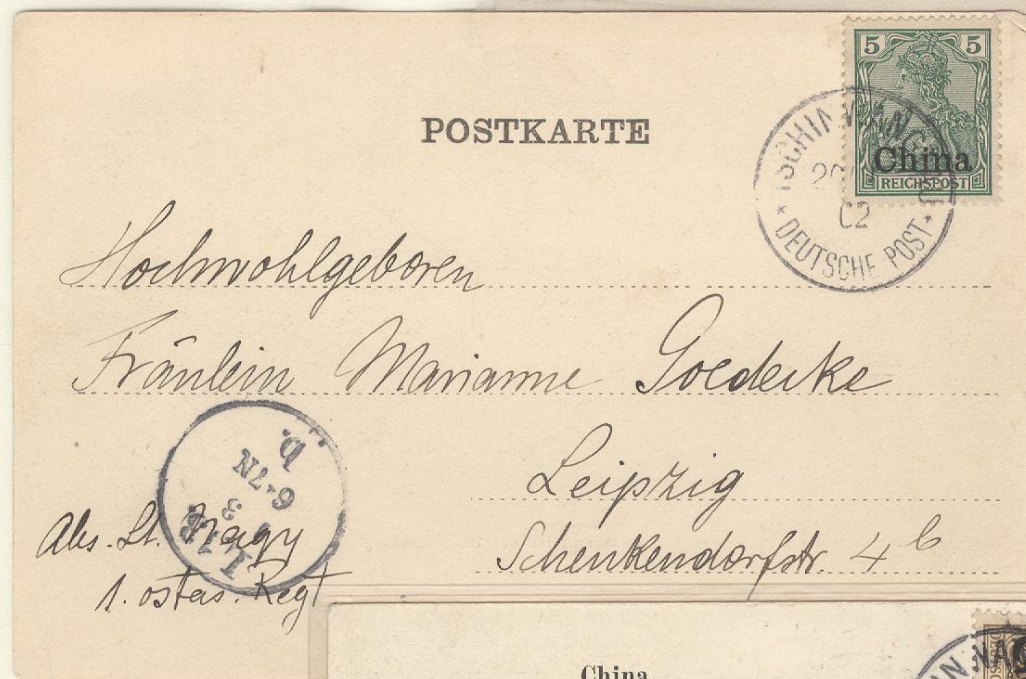 5 5
China
REICHSPOST
POSTKARTE
TSCHINWANG
20
02
* DEUTSCHE POST *
Hochwohlgeboren
Fräulein Marianne Goedecke
Leipzig
Schenkendorfstr. 4 b
6-7N
3
b.
Abs. Lt. Nagy
1. ostas. Regt
China